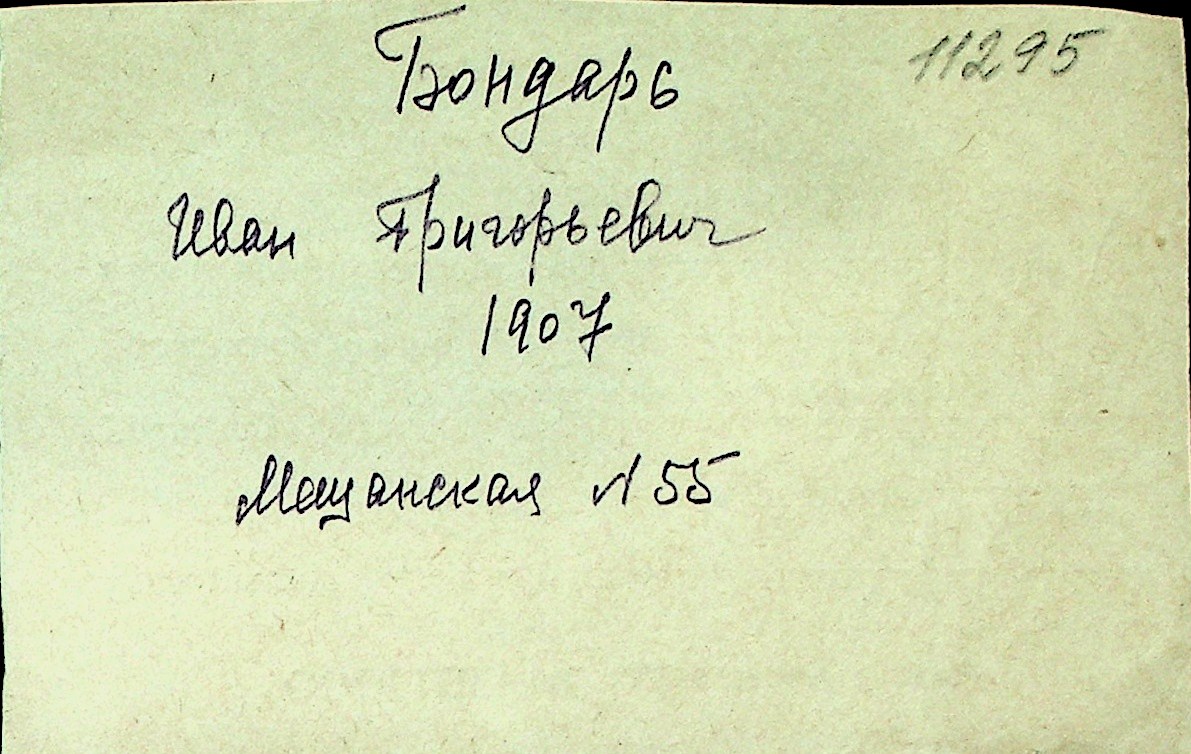 11295
Бондарь
Иван Григорьевич
1907
Мещанская N 55